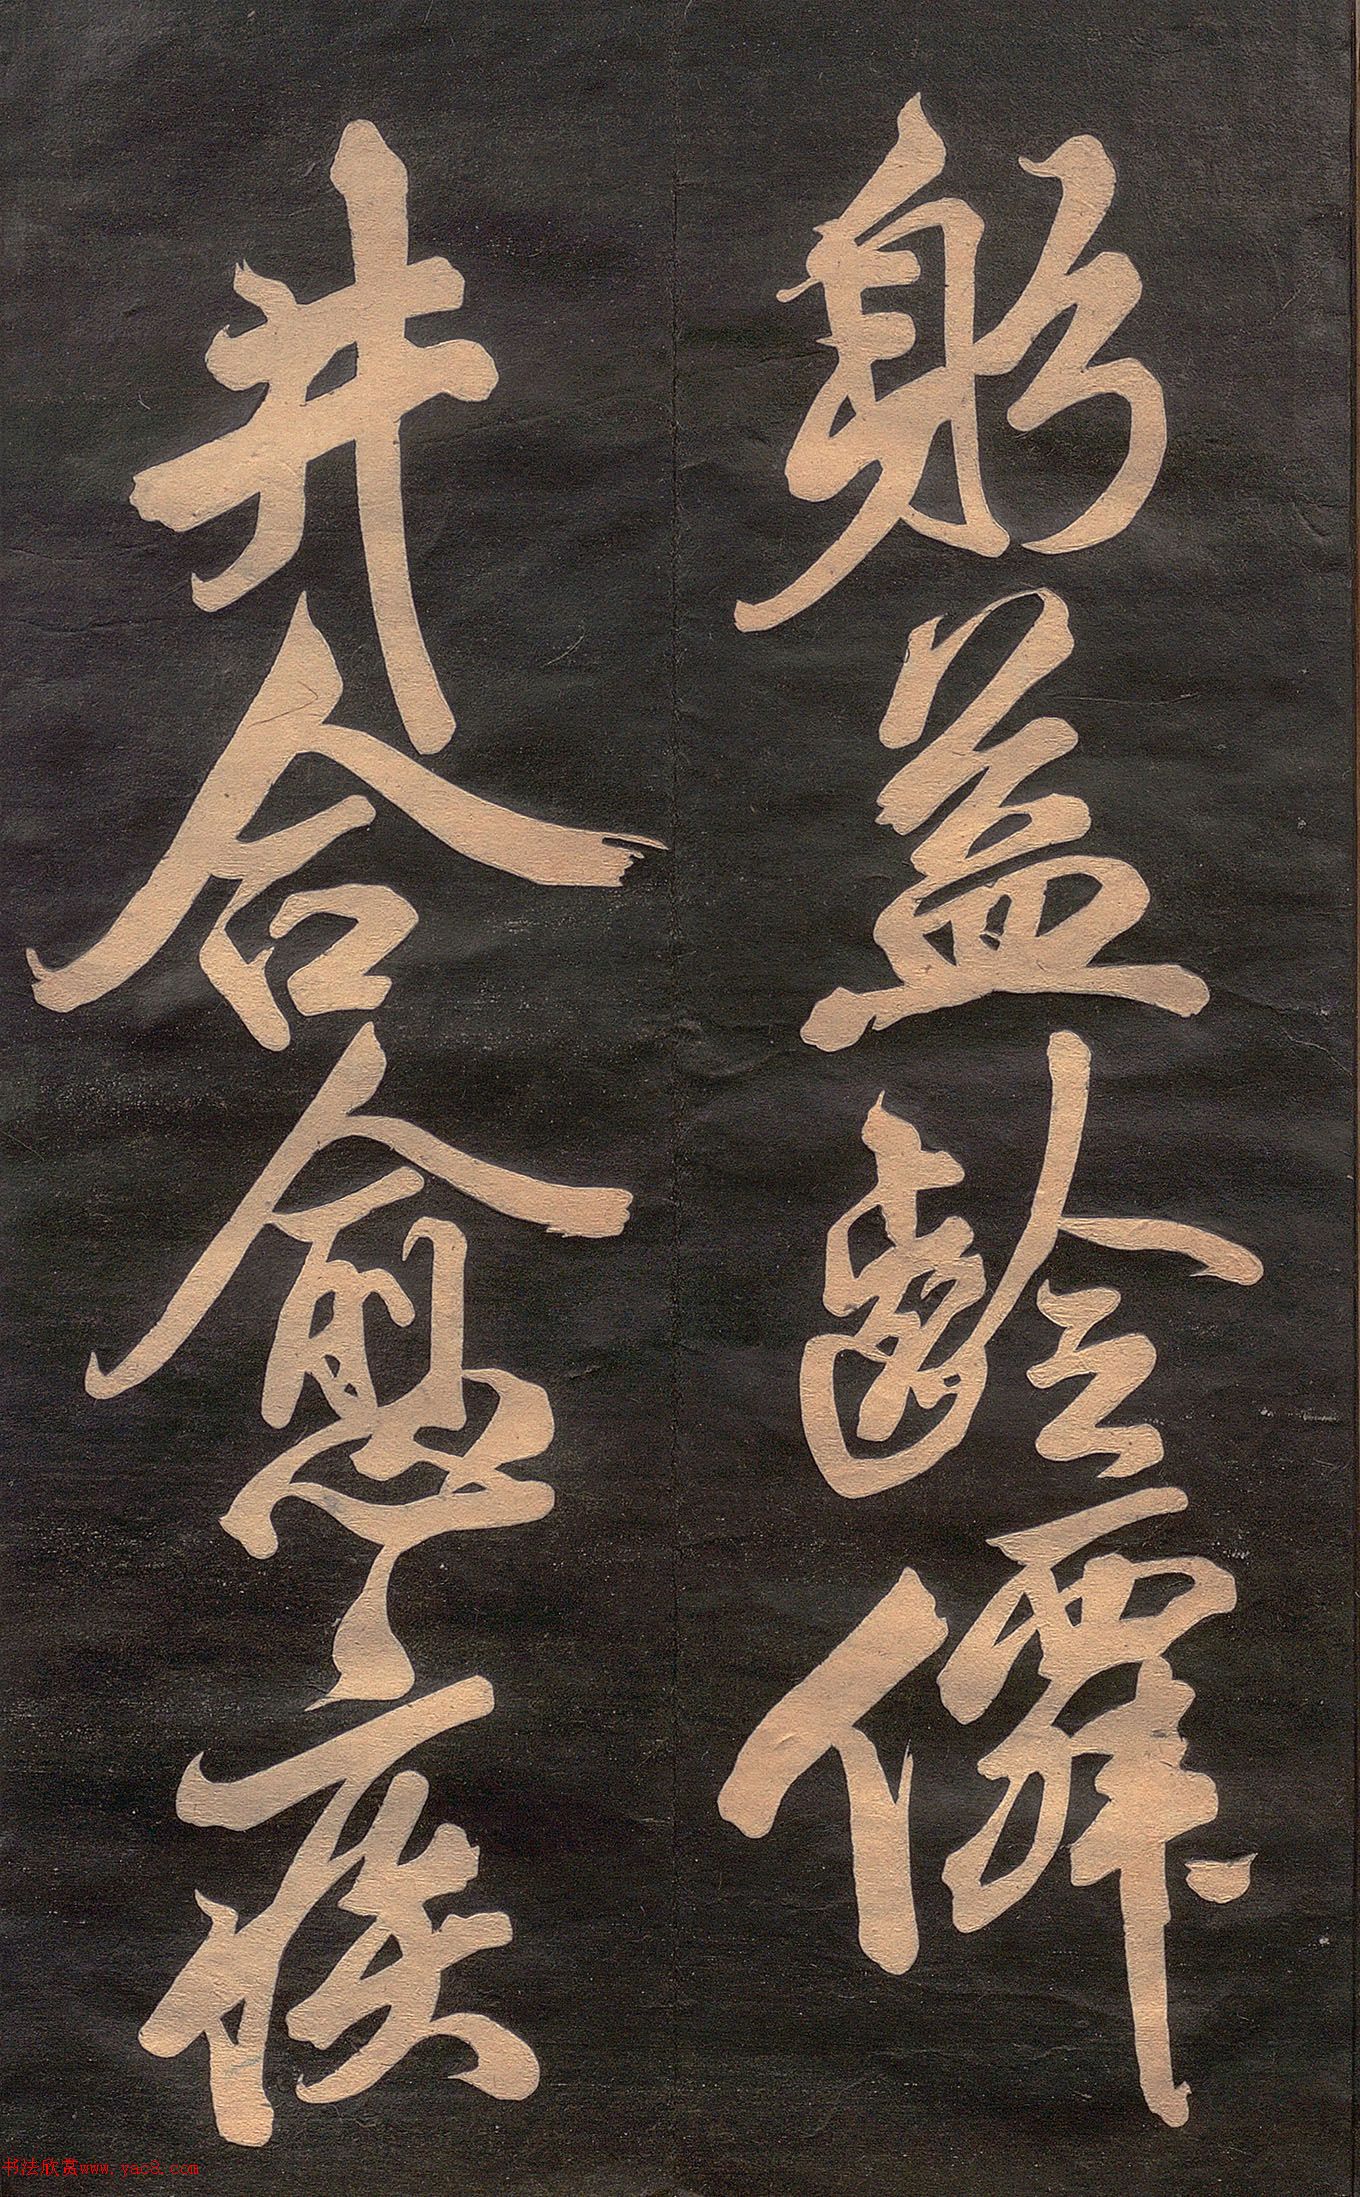 躬益齡僊
井合愈立矦
书法欣赏www.yac8.com